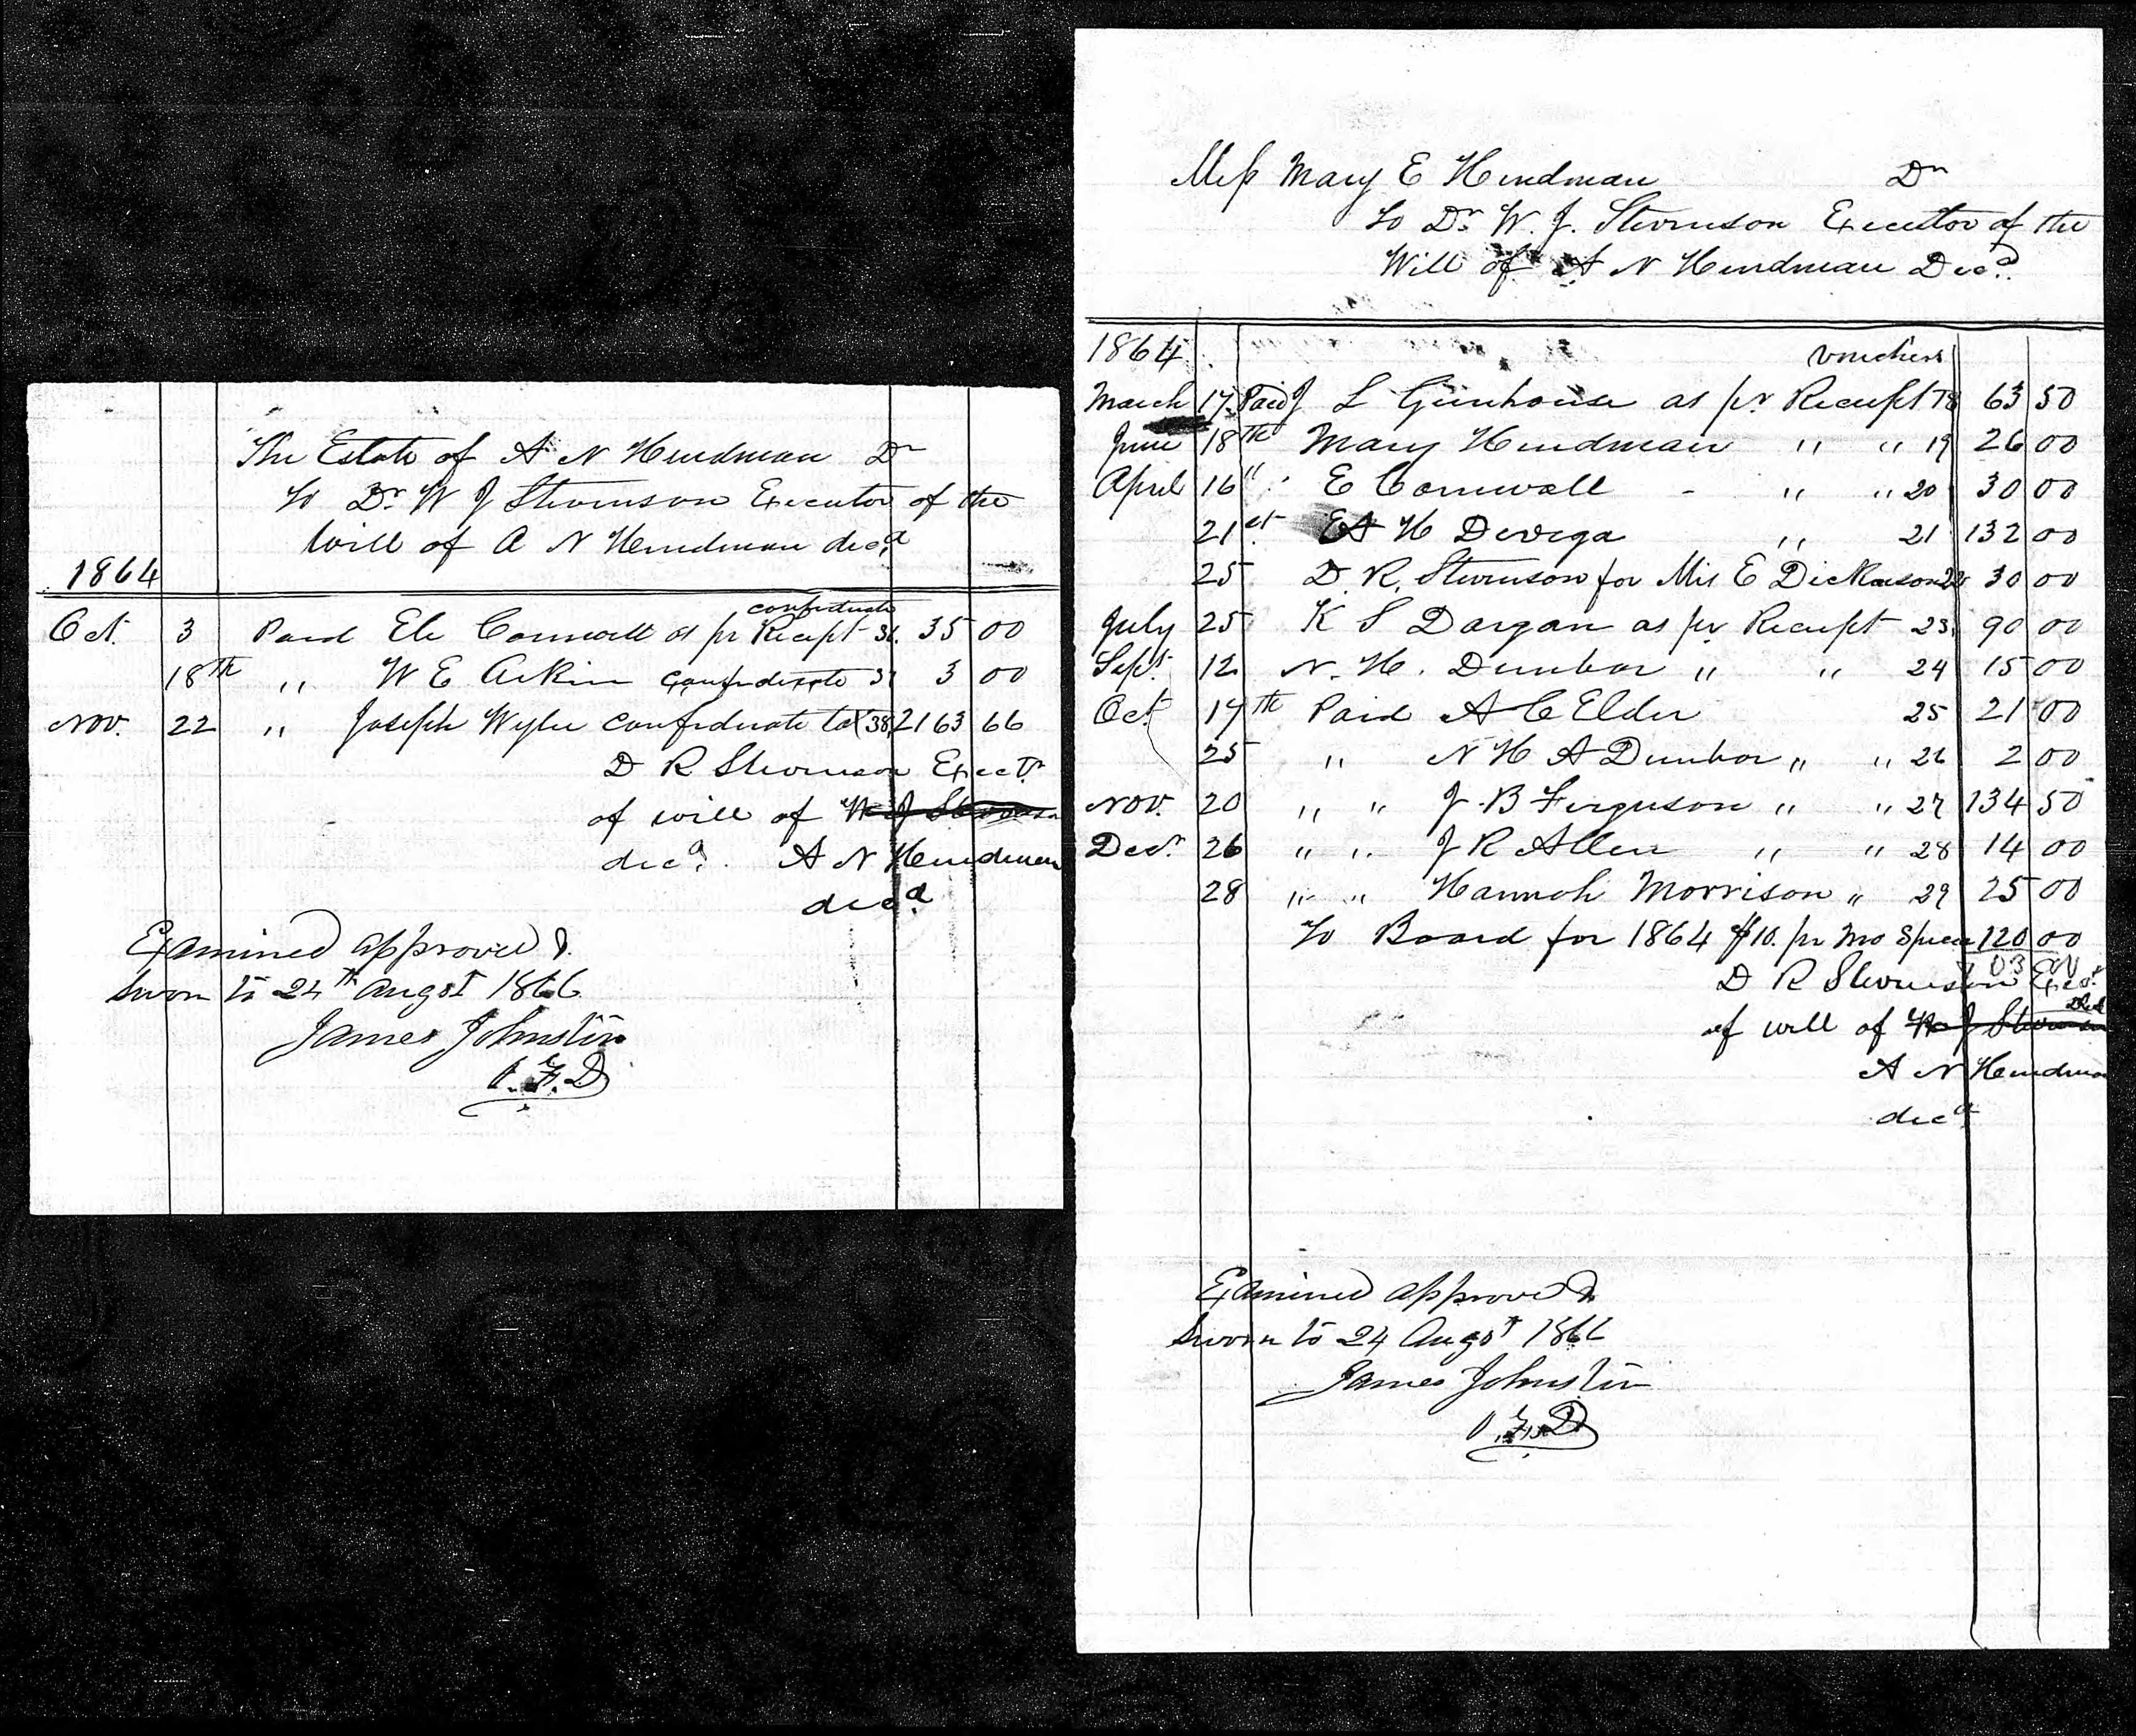 The Estate of A N Hindman Dr
To Dr W J Stevenson Executor of the
Will of A N Hindman decd
1864
Oct. 3 Paid Eli Cornwell as pr confederate Receipt 36. 35 00
18th " W E Aikin confederate 37 3 00
Nov. 22 " Joseph Wylie confederate tax 38 2163 66
D R Stevenson Exectr
of will of W J Stevenson
decd. A N Hindman
decd
Examined approved &
Sworn to 24th Augst 1866
James Johnston
O.F.D
Miss Mary E Hindman Dr
To Dr. W. J. Stevenson Executor of the
Will of A N Hindman Decd.
1864 Vouchers
March 17 Paid J L Greenhouse as pr Receipt 18 63 50
June 18th Mary Hindman " " 19 26 00
April 16 " E Cornwell - " " 20 30 00
21st E A H Devega " 21 132 00
25 D. R. Stevenson for Mis E Dickerson 22 30 00
July 25 K S Dargan as pr Receipt 23 90 00
Sept. 12 N. H. Dunbar " " 24 15 00
Oct 17th Paid A C Elder 25 21 00
25 " N H A Dunbar " " 26 2 00
Nov. 20 " " J B Ferguson " " 27 134 50
Decr. 26 " " J R Allen " " 28 14 00
28 " " Hannah Morrison " 29 25 00
To Board for 1864 $10. pr Mo Specie 120 00
D R Stevenson Exct.
of will of W J Stevenson
A N Hindman
decd
Examined approved &
Sworn to 24 Augst 1866
James Johnston
O.F.D